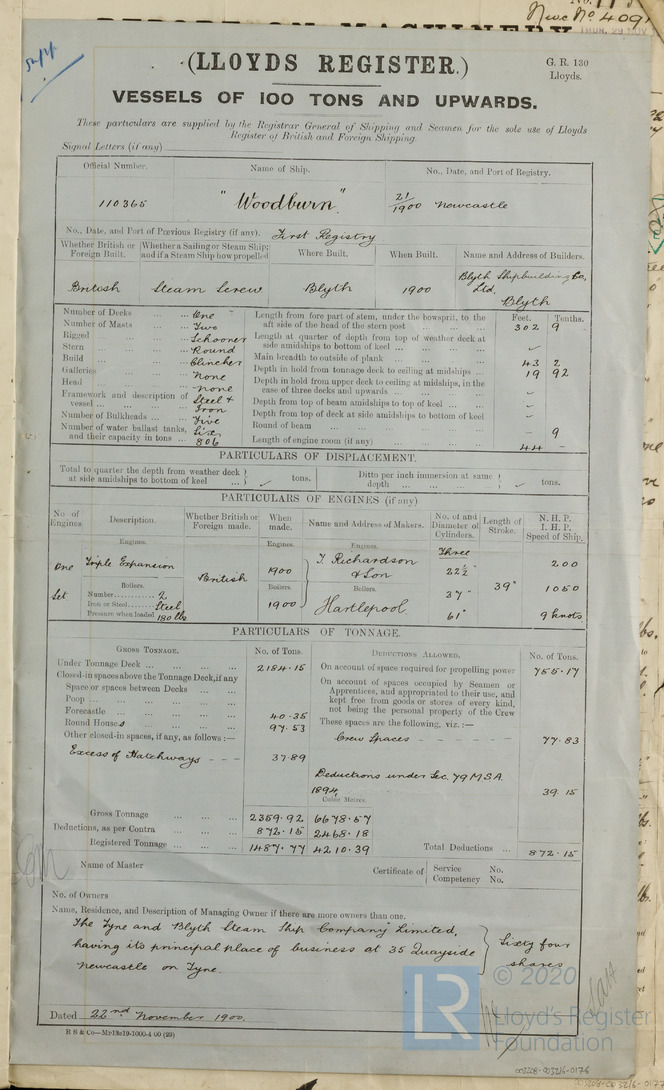 Newc No. 4091
REPORT ON MACHINERY
Supp
(LLOYDS REGISTER.)
G. R. 130
Lloyds.
VESSELS OF 100 TONS AND UPWARDS.
These particulars are supplied by the Registrar General of Shipping and Seamen for the sole use of Lloyds
Register of British and Foreign Shipping.
Signal Letters (if any)
Official Number. Name of Ship. No., Date, and Port of Registry.
110365 "Woodburn" 21/1900 Newcastle
No., Date, and Port of Previous Registry (if any). First Registry
Whether British or Foreign Built. Whether a Sailing or Steam Ship; and if a Steam Ship how propelled Where Built. When Built. Name and Address of Builders.
British Steam Screw Blyth 1900 Blyth Shipbuilding Co. Ltd. Blyth
Number of Decks ... ... One
Number of Masts ... ... Two
Rigged ... ... Schooner
Stern ... ... Round
Build ... ... Clincher
Galleries ... ... None
Head ... ... None
Framework and description of vessel ... ... Steel & Iron
Number of Bulkheads ... Five
Number of water ballast tanks, and their capacity in tons ... Six 806
Feet. Tenths.
Length from fore part of stem, under the bowsprit, to the aft side of the head of the stern post ... 302 9
Length at quarter of depth from top of weather deck at side amidships to bottom of keel ...
Main breadth to outside of plank ... 43 2
Depth in hold from tonnage deck to ceiling at midships ... 19 92
Depth in hold from upper deck to ceiling at midships, in the case of three decks and upwards ... -
Depth from top of beam amidships to top of keel ... -
Depth from top of deck at side amidships to bottom of keel -
Round of beam ... - 9
Length of engine room (if any) ... 44 -
PARTICULARS OF DISPLACEMENT.
Total to quarter the depth from weather deck at side amidships to bottom of keel ... tons.
Ditto per inch immersion at same depth ... tons.
PARTICULARS OF ENGINES (if any)
No. of Engines Description. Whether British or Foreign made. When made. Name and Address of Makers. No. of and Diameter of Cylinders. Length of Stroke. N. H. P. I. H. P. Speed of Ship.
Engines. Engines. Engines. Three
One Triple Expansion 1900 T. Richardson & Son 22½" 200
Boilers. British Boilers. Boilers. 39"
Set Number............ 2 37" 1050
Iron or Steel...... Steel 1900 Hartlepool
Pressure when loaded 180 lbs 61" 9 knots
PARTICULARS OF TONNAGE.
GROSS TONNAGE. No. of Tons.
Under Tonnage Deck ... 2184.15
Closed-in spaces above the Tonnage Deck, if any
Space or spaces between Decks ...
Poop ...
Forecastle ... 40.35
Round Houses ... 97.53
Other closed-in spaces, if any, as follows :—
Excess of Hatchways - - - 37.89
DEDUCTIONS ALLOWED. No. of Tons.
On account of space required for propelling power 755.17
On account of spaces occupied by Seamen or Apprentices, and appropriated to their use, and kept free from goods or stores of every kind, not being the personal property of the Crew
These spaces are the following, viz. :—
Crew Spaces - 77.83
Deductions under Sec. 79 M.S.A. 1894 39.15
Cubic Metres.
Gross Tonnage ... 2359.92 6678.57
Deductions, as per Contra ... 872.15 2468.18
Registered Tonnage ... 1487.77 4210.39 Total Deductions ... 872.15
Name of Master Certificate of Service No.
Competency No.
No. of Owners
Name, Residence, and Description of Managing Owner if there are more owners than one.
The Tyne and Blyth Steam Ship Company Limited,
having its principal place of business at 35 Quayside
Newcastle on Tyne.
Sixty four
shares
Dated 22nd November 1900.
© 2020
LR Lloyd's Register
Foundation
002208-003216-0176